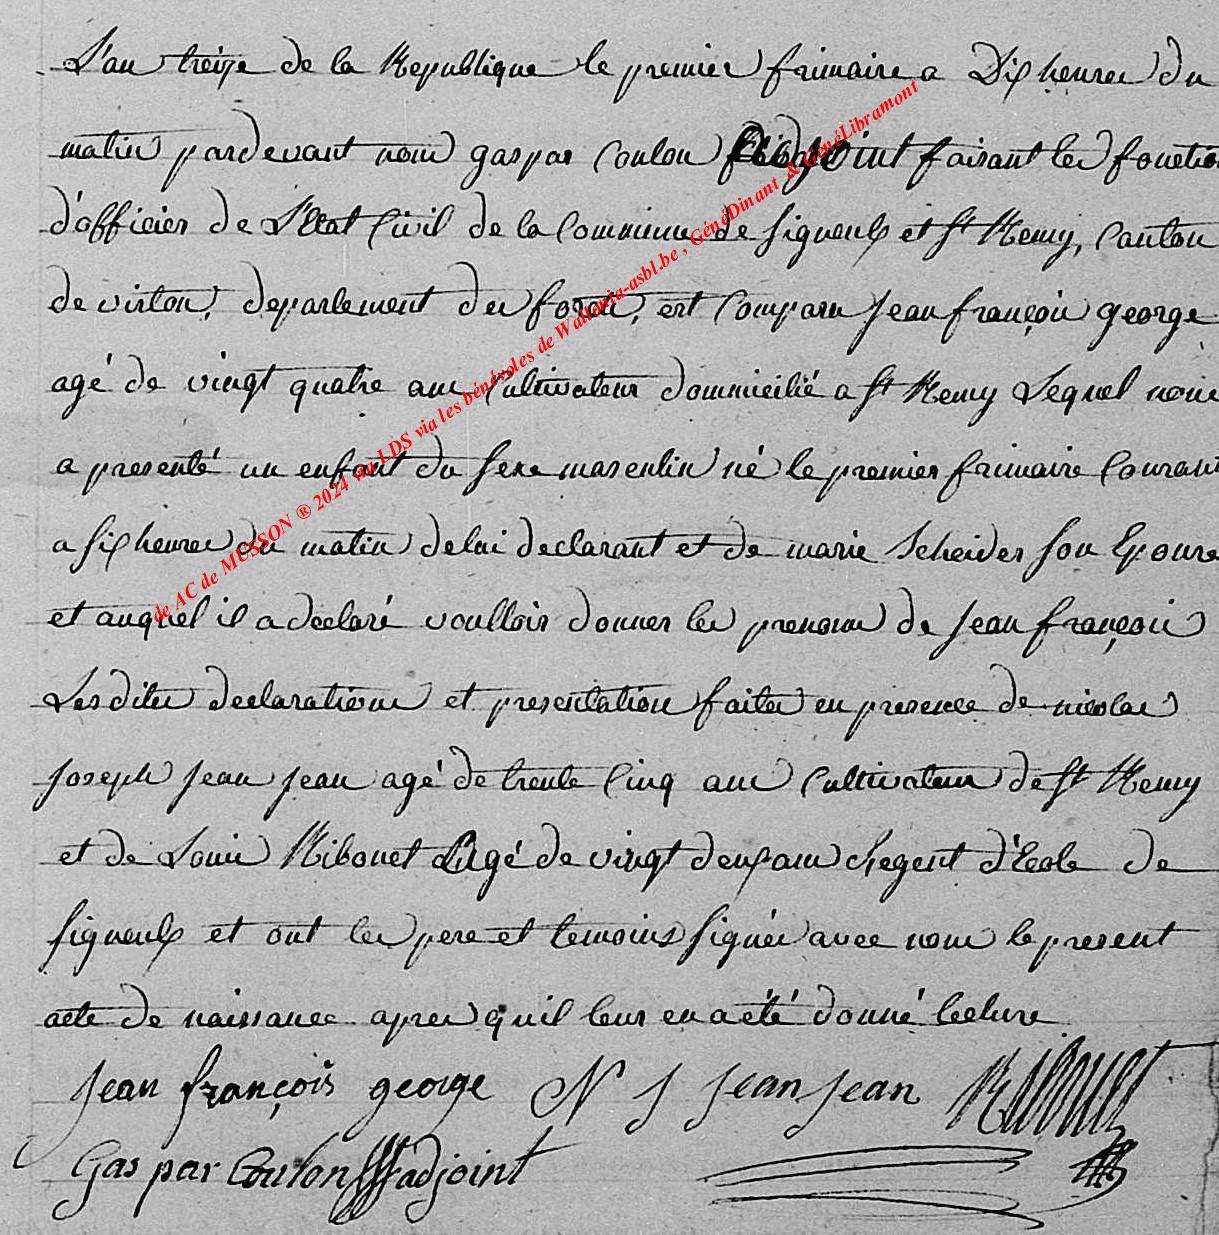 L'an treize de la Republique le premier frimaire a Dix heures du
matin pardevant nous gaspar Coulon adjoint faisant les fonctio
d'officier de L'Etat Civil de la Commune de signeulx et St Remy, Canton
de virton, departement des forets, est Comparu Jean françois george
agé de vingt quatre ans Cultivateur dommicilié a St Remy Lequel nous
a presenté un enfant du sexe masculin né le premier frimaire Courant
a six heures du matin de lui declarant et de marie Scheider son Epouse
et auquel il a declaré voulloir donner les prenoms de Jean françois
Lesdites declarations et presentation faites en presence de nicolas
Joseph Jean Jean agé de trente Cinq ans Cultivateur de St Remy
et de Louis Ribouet agé de vingt deux ans Regent d'Ecole de
signeulx et ont les pere et temoins signés avec nous le present
acte de naissance apres qu'il leur en a été donné lecture
Jean françois george N J Jean Jean Ribouet
Gaspar Coulon adjoint
de AC de MUSSON ® 2024 via LDS via les bénévoles de Wallonia-asbl.be , GénéDinant & GénéLibramont